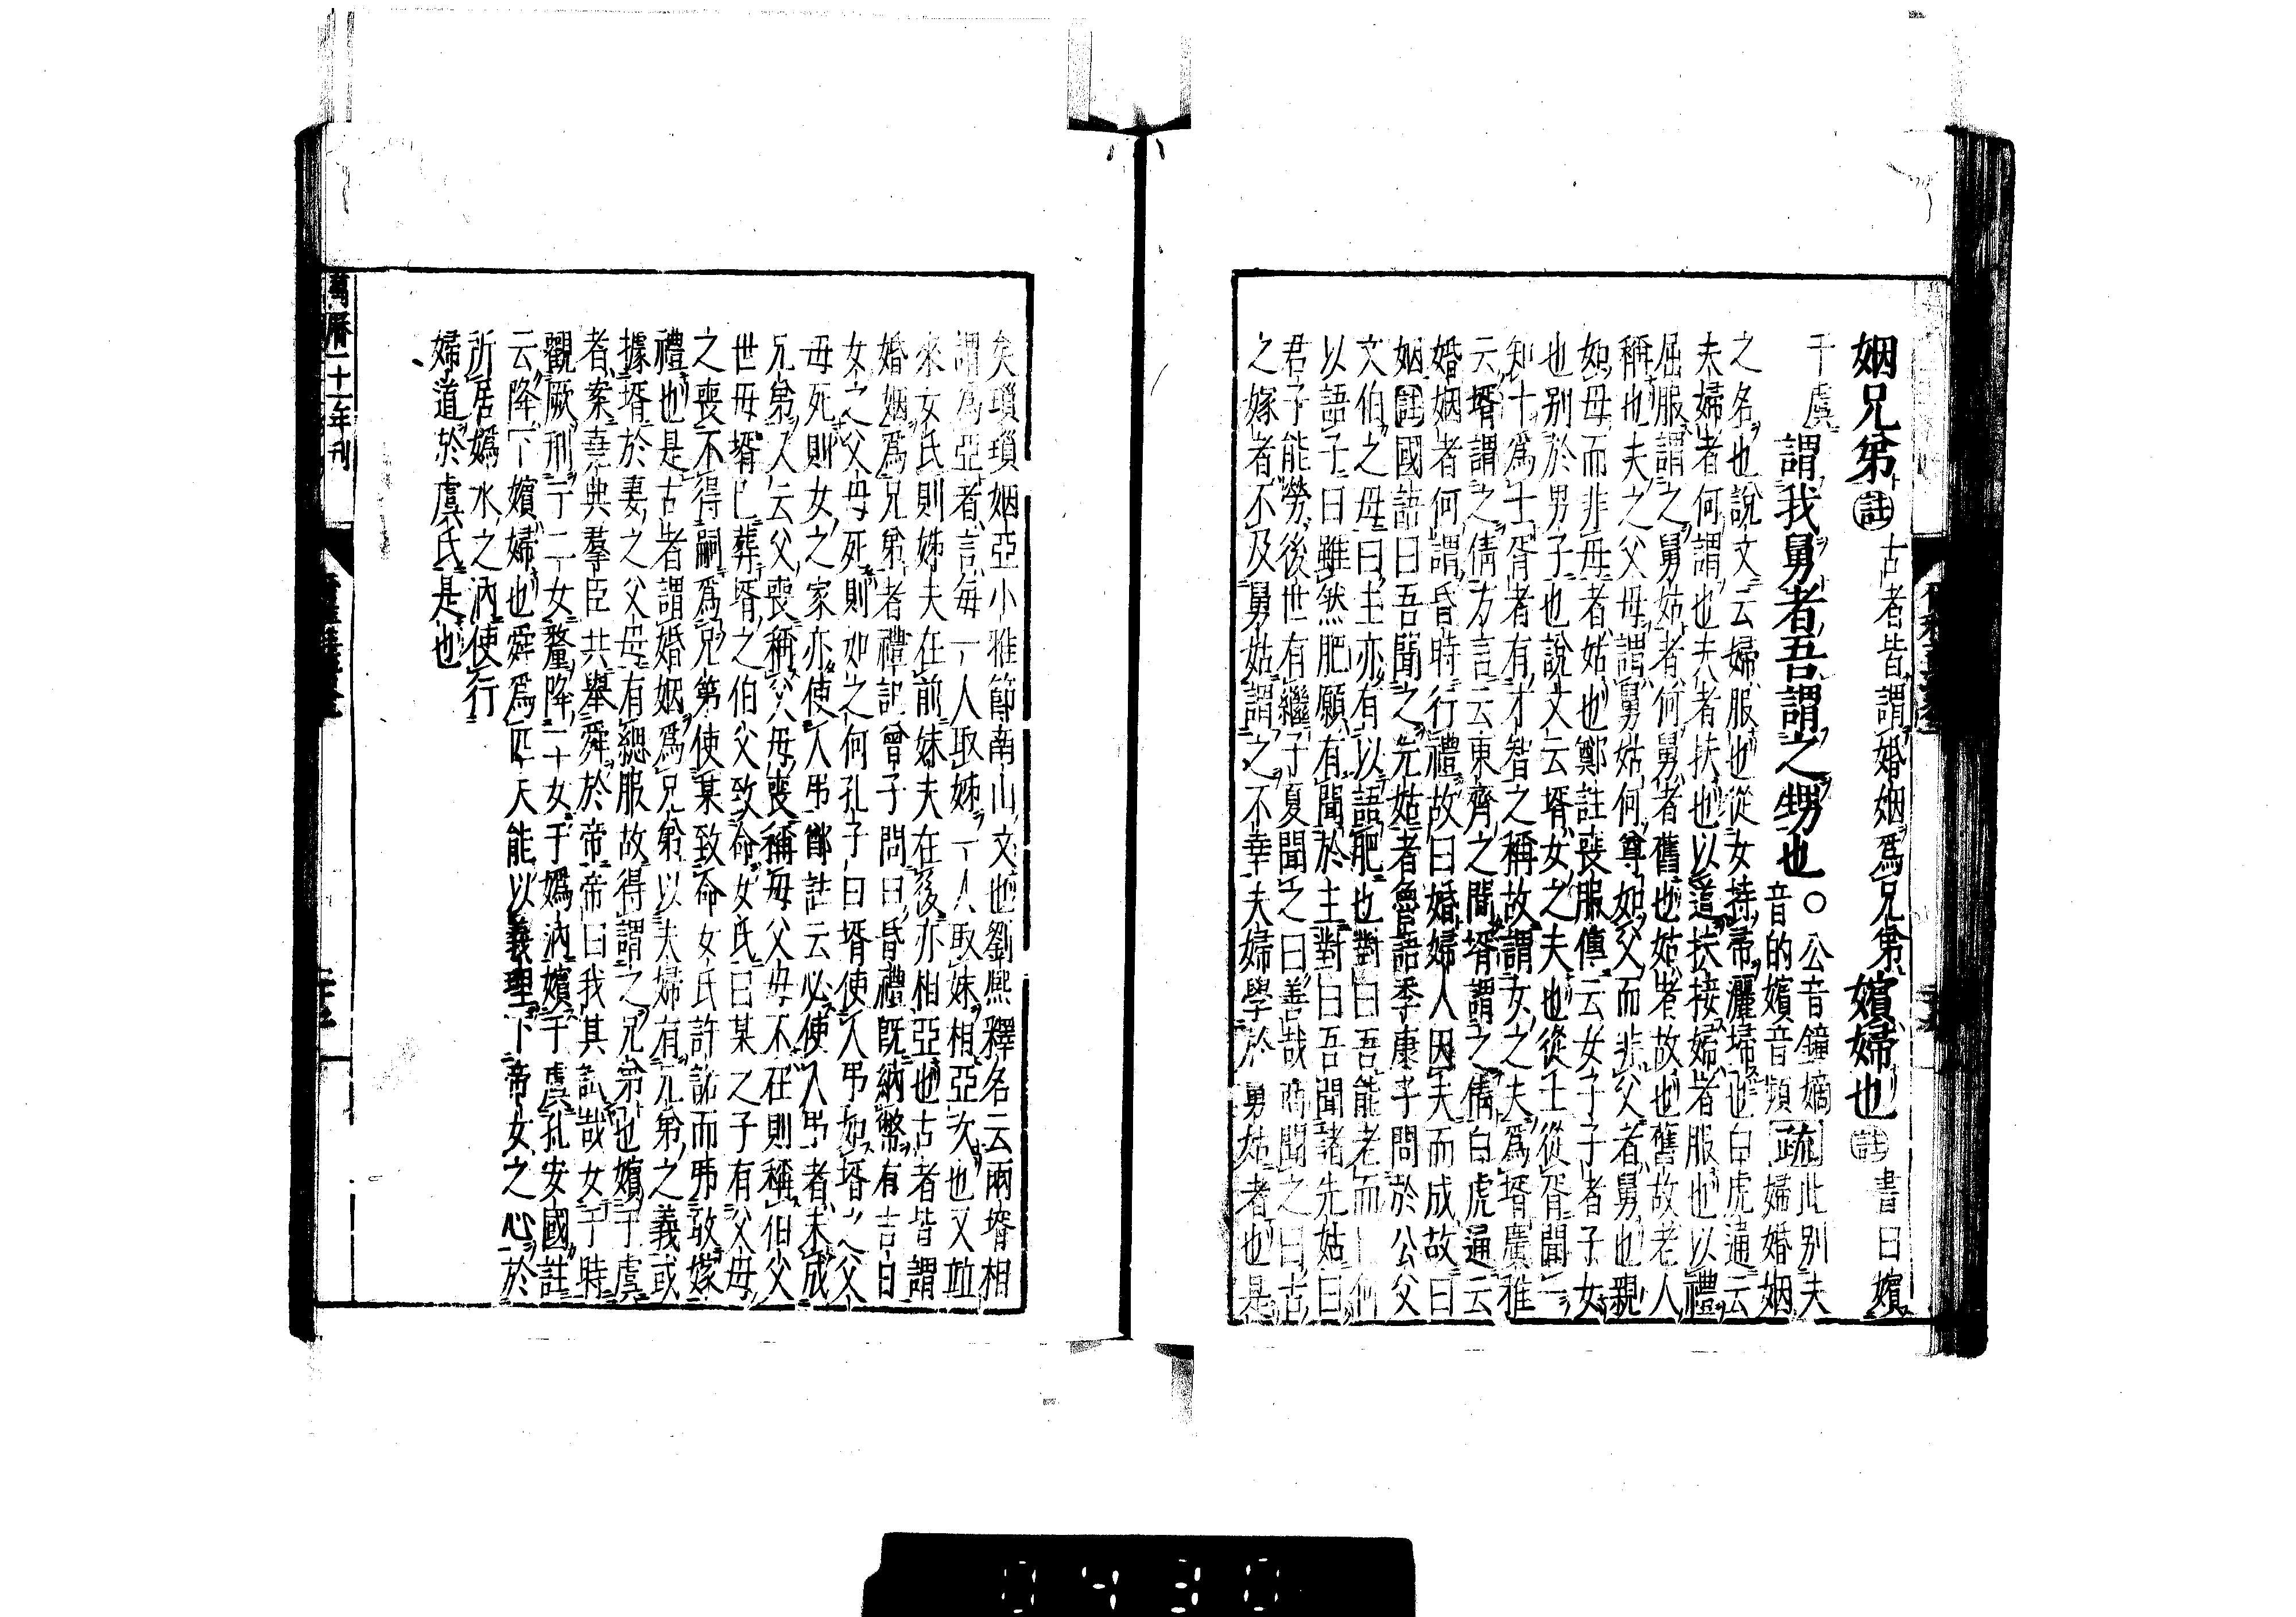 姻兄弟註古者皆謂婚姻爲兄弟嬪婦也註書曰嬪
于虞謂我舅者吾謂之甥也○公音鐘嫡
音的嬪音頻疏此別夫
婦婚姻
之名也說文云婦服也從女持帚灑埽也白虎通云
夫婦者何謂也夫者扶也以道扶接婦者服也以禮
屈服謂之舅姑者何舅者舊也姑者故也舊故老人
稱也夫之父母謂舅姑何尊如父而非父者舅也親
如母而非母者姑也鄭註喪服傳云女子子者子女
也别於男子也說文云壻女之夫也從士從胥聞一
知十爲士胥者有才智之稱故謂女之夫爲壻廣雅
云壻謂之倩方言云東齊之間壻謂之倩白虎通云
婚姻者何謂昏時行禮故曰婚婦人因夫而成故曰
姻註國語曰吾聞之先姑者魯語季康子問於公父
文伯之母曰主亦有以語肥也對曰吾能老而已何
以語子曰雖然肥願有聞於主對曰吾聞諸先姑曰
君子能勞後世有繼子夏聞之曰善哉商聞之曰古
之嫁者不及舅姑謂之不幸夫婦學於舅姑者也是
矣瑣瑣姻亞小雅節南山文也劉熙釋名云兩壻相
謂爲亞者言每一人取姊一人取妹相亞次也又並
來女氏則姊夫在前妹夫在後亦相亞也古者皆謂
婚姻爲兄弟者禮記曾子問曰昏禮旣納幣有吉日
女之父母死則如之何孔子曰壻使人弔如壻之父
母死則女之家亦使人弔鄭註云必使人弔者未成
兄弟人云父喪稱父母喪稱母父母不在則稱伯父
世母壻已葬壻之伯父致命女氏曰某之子有父母
之喪不得嗣爲兄第使某致命女氏許諾而弗敢嫁
禮也是古者謂婚姻爲兄弟以夫婦有兄弟之義或
據壻於妻之父母有緦服故得謂之兄弟也嬪于虞
者案堯典羣臣共舉舜於帝帝曰我其試哉女于時
觀厥刑于二女釐降二女于嬀汭嬪于虞孔安國註
云降下嬪婦也舜爲匹夫能以義理下帝女之心於
所居嬀水之汭使行
婦道於虞氏是也
萬曆二十一年刊
0430